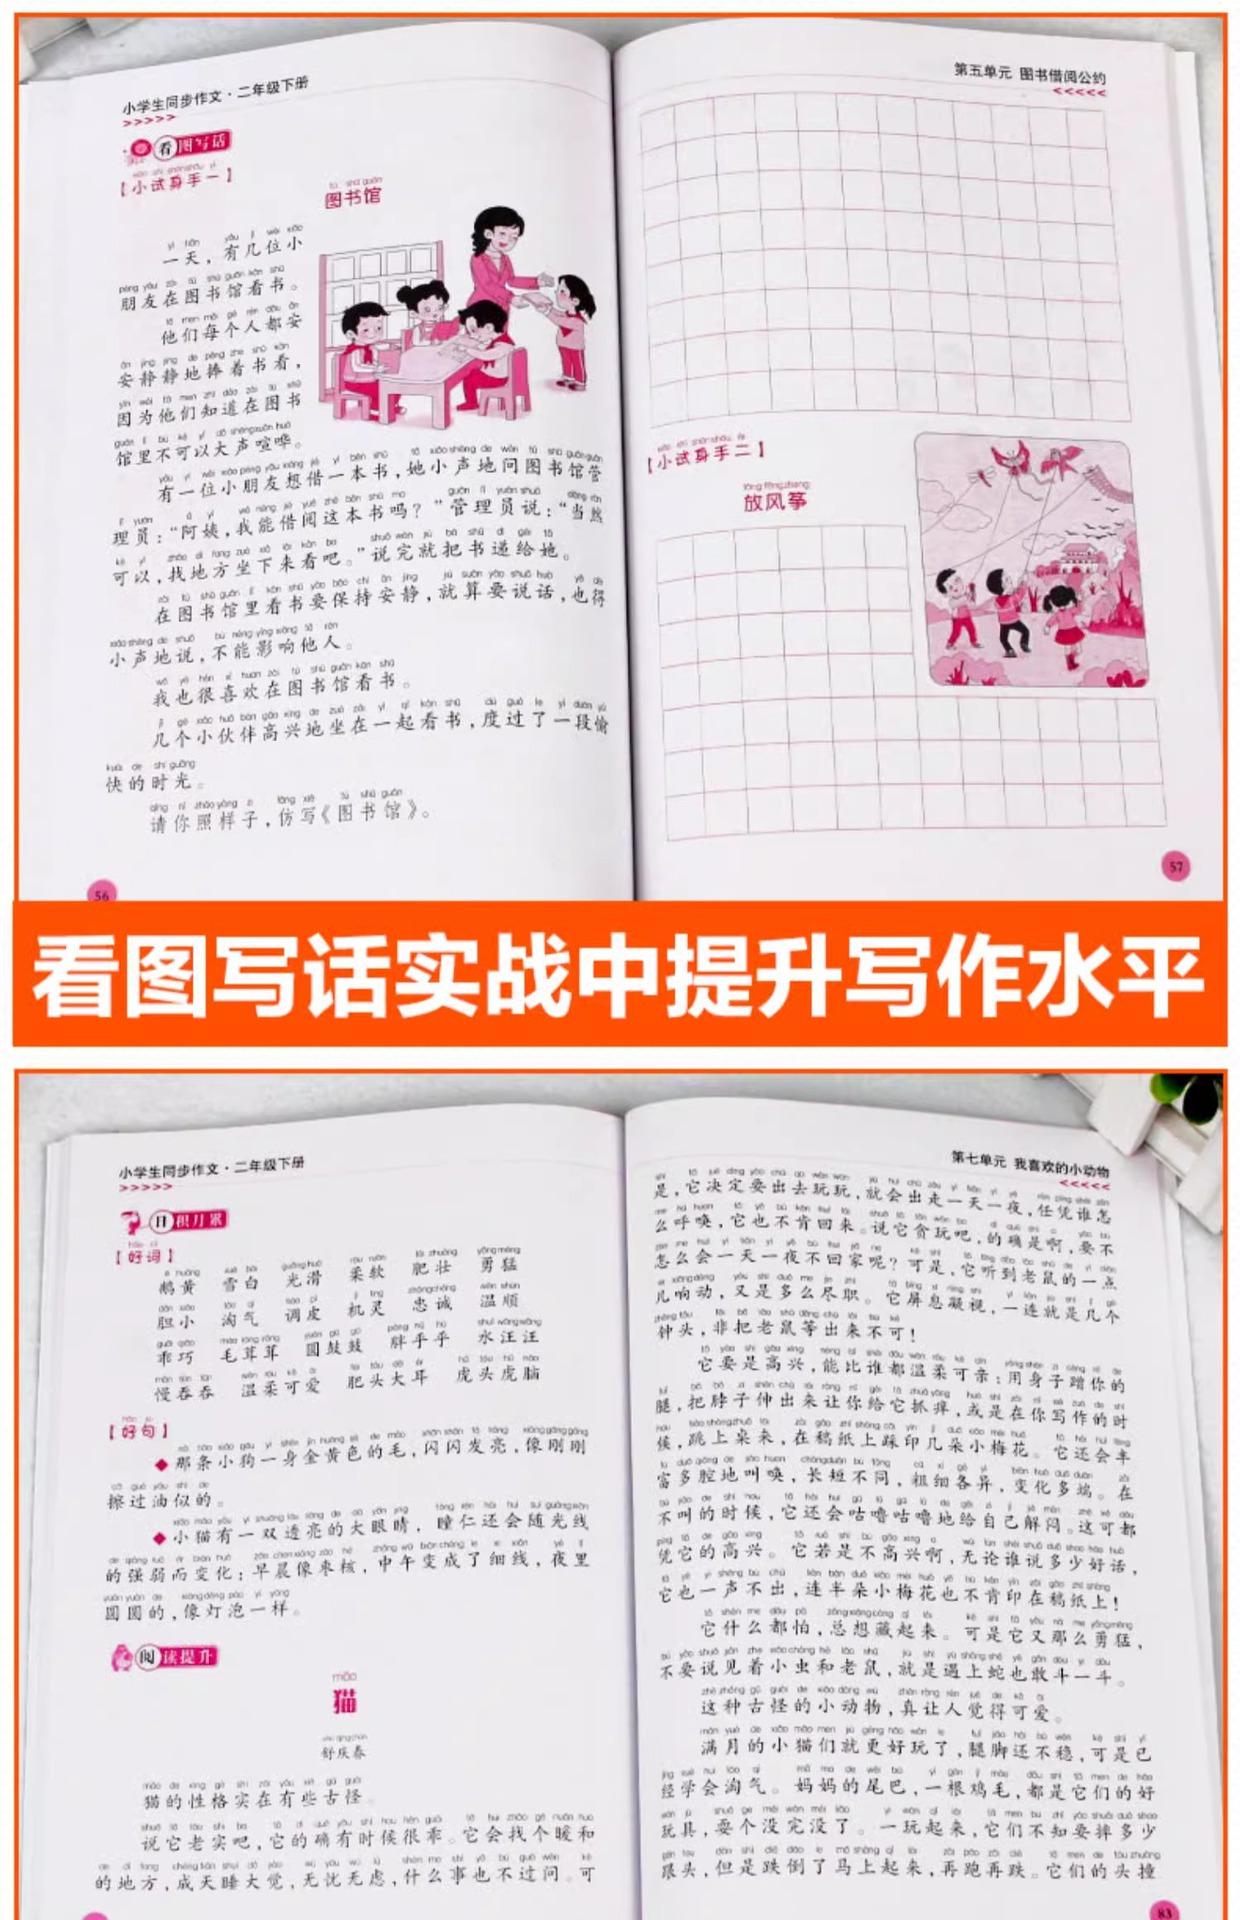 小学生同步作文·二年级下册
>>>>>
看图写话
【小试身手一】
图书馆
一天，有几位小
朋友在图书馆看书。
他们每个人都安
安静静地捧着书看，
因为他们知道在图书
馆里不可以大声喧哗。
有一位小朋友想借一本书，她小声地问图书馆管
理员：“阿姨，我能借阅这本书吗？”管理员说：“当然
可以，找地方坐下来看吧。”说完就把书递给她。
在图书馆里看书要保持安静，就算要说话，也得
小声地说，不能影响他人。
我也很喜欢在图书馆看书。
几个小伙伴高兴地坐在一起看书，度过了一段愉
快的时光。
请你照样子，仿写《图书馆》。
56
第五单元 图书借阅公约
<<<<<
【小试身手二】
放风筝
57
看图写话实战中提升写作水平
小学生同步作文·二年级下册
>>>>>
日积月累
【好词】
鹅黄 雪白 光滑 柔软 肥壮 勇猛
胆小 淘气 调皮 机灵 忠诚 温顺
乖巧 毛茸茸 圆鼓鼓 胖乎乎 水汪汪
慢吞吞 温柔可爱 肥头大耳 虎头虎脑
【好句】
◆那条小狗一身金黄色的毛，闪闪发亮，像刚刚
擦过油似的。
◆小猫有一双透亮的大眼睛，瞳仁还会随光线
的强弱而变化：早晨像枣核，中午变成了细线，夜里
圆圆的，像灯泡一样。
阅读提升
猫
舒庆春
猫的性格实在有些古怪。
说它老实吧，它的确有时候很乖。它会找个暖和
的地方，成天睡大觉，无忧无虑，什么事也不过问。可
第七单元 我喜欢的小动物
<<<<<
是，它决定要出去玩玩，就会出走一天一夜，任凭谁怎
么呼唤，它也不肯回来。说它贪玩吧，的确是啊，要不
怎么会一天一夜不回家呢？可是，它听到老鼠的一点
儿响动，又是多么尽职。它屏息凝视，一连就是几个
钟头，非把老鼠等出来不可！
它要是高兴，能比谁都温柔可亲：用身子蹭你的
腿，把脖子伸出来让你给它抓痒，或是在你写作的时
候，跳上桌来，在稿纸上踩印几朵小梅花。它还会丰
富多腔地叫唤，长短不同，粗细各异，变化多端。在
不叫的时候，它还会咕噜咕噜地给自己解闷。这可都
凭它的高兴。它若是不高兴啊，无论谁说多少好话，
它也一声不出，连半朵小梅花也不肯印在稿纸上！
它什么都怕，总想藏起来。可是它又那么勇猛，
不要说见着小虫和老鼠，就是遇上蛇也敢斗一斗。
这种古怪的小动物，真让人觉得可爱。
满月的小猫们就更好玩了，腿脚还不稳，可是已
经学会淘气。妈妈的尾巴，一根鸡毛，都是它们的好
玩具，耍个没完没了。一玩起来，它们不知要摔多少
跟头，但是跌倒了马上起来，再跑再跌。它们的头撞
83